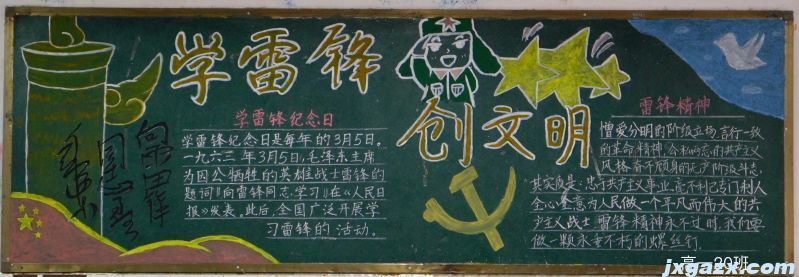 学雷锋
创文明
学雷锋纪念日
学雷锋纪念日是每年的3月5日。
一九六三年3月5日,毛泽东主席
为因公牺牲的英雄战士雷锋的
题词“向雷锋同志学习”在《人民日
报》发表。此后,全国广泛开展学
习雷锋的活动。
雷锋精神
憎爱分明的阶级立场,言行一致
的革命精神,公私而忘的共产主义
风格,奋不顾身的无产阶级斗志,
其实质是:忠于共产主义事业,毫不利己专门利人
全心全意为人民做一个平凡而伟大的共
产主义战士。雷锋精神永不过时,我们要
做一颗永垂不朽的螺丝钉。
高 20班
jxgazx.com